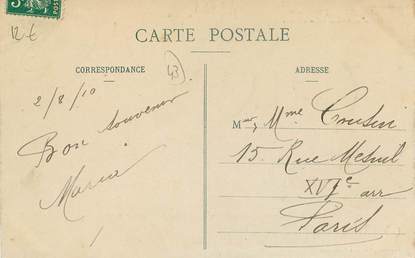 5
12 €
CARTE POSTALE
43
CORRESPONDANCE
2/8/10
Bon souvenir
Maria
ADRESSE
M Mme
15. Rue Mesnil
XVIe arr
Paris